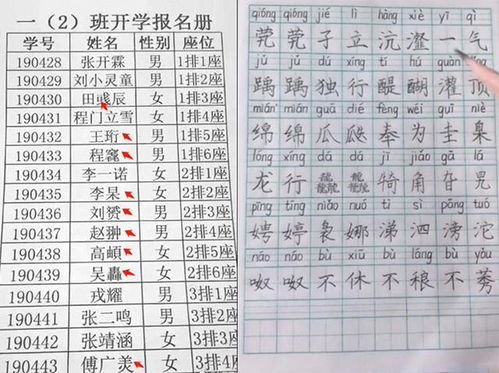 一（2）班开学报名册
学号 姓名 性别 座位
190428 张开霖 男 1排1座
190429 刘小灵童 男 1排2座
190430 田彧辰 女 1排3座
190431 程门立雪 女 1排4座
190432 王珩 男 1排5座
190433 程 男 1排6座
190434 李一诺 女 2排1座
190435 李杲 女 2排2座
190436 刘赟 男 2排3座
190437 赵翀 男 2排4座
190438 高頔 女 2排5座
190439 吴轟 女 2排6座
190440 戎耀 男 3排1座
190441 张二鸣 男 3排2座
190442 张靖涵 女 3排3座
190443 傅广羙 女 3排4座
qióng qióng jié lì hàng xiè yī qì
茕茕孑立沆瀣一气
jǔ jǔ dú xíng tí hú guàn dǐng
踽踽独行醍醐灌顶
mián mián guā dié fèng wéi guī niè
绵绵瓜瓞奉为圭臬
lóng xíng dá dá jī jiǎo gā lá
龙行龘龘犄角旮旯
pīng tíng niǎo nuó tì sì pāng tuó
娉婷袅娜涕泗滂沱
náo náo bù xiū bù láng bù yǒu
呶呶不休不稂不莠